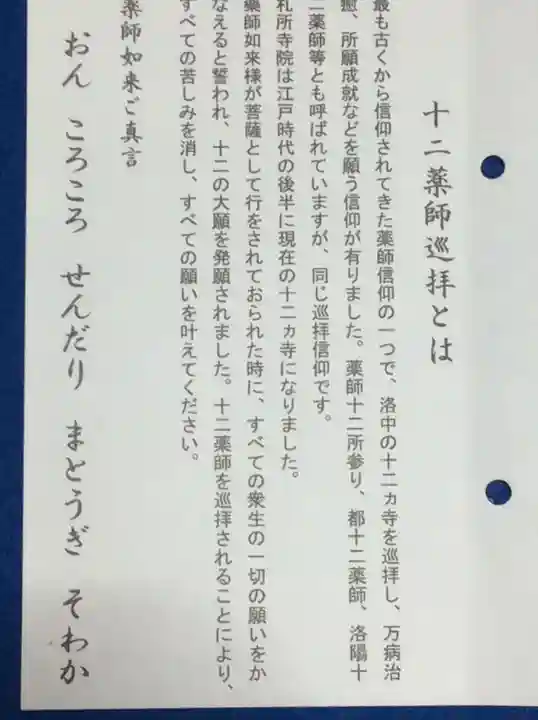 十二薬師巡拝とは
最も古くから信仰されてきた薬師信仰の一つで、洛中の十二ヵ寺を巡拝し、万病治
癒、所願成就などを願う信仰が有りました。薬師十二所参り、都十二薬師、洛陽十
二薬師等とも呼ばれていますが、同じ巡拝信仰です。
札所寺院は江戸時代の後半に現在の十二ヵ寺になりました。
薬師如来様が菩薩として行をされておられた時に、すべての衆生の一切の願いをか
なえると誓われ、十二の大願を発願されました。十二薬師を巡拝されることにより、
すべての苦しみを消し、すべての願いを叶えてください。
薬師如来ご真言
おん ころころ せんだり まとうぎ そわか